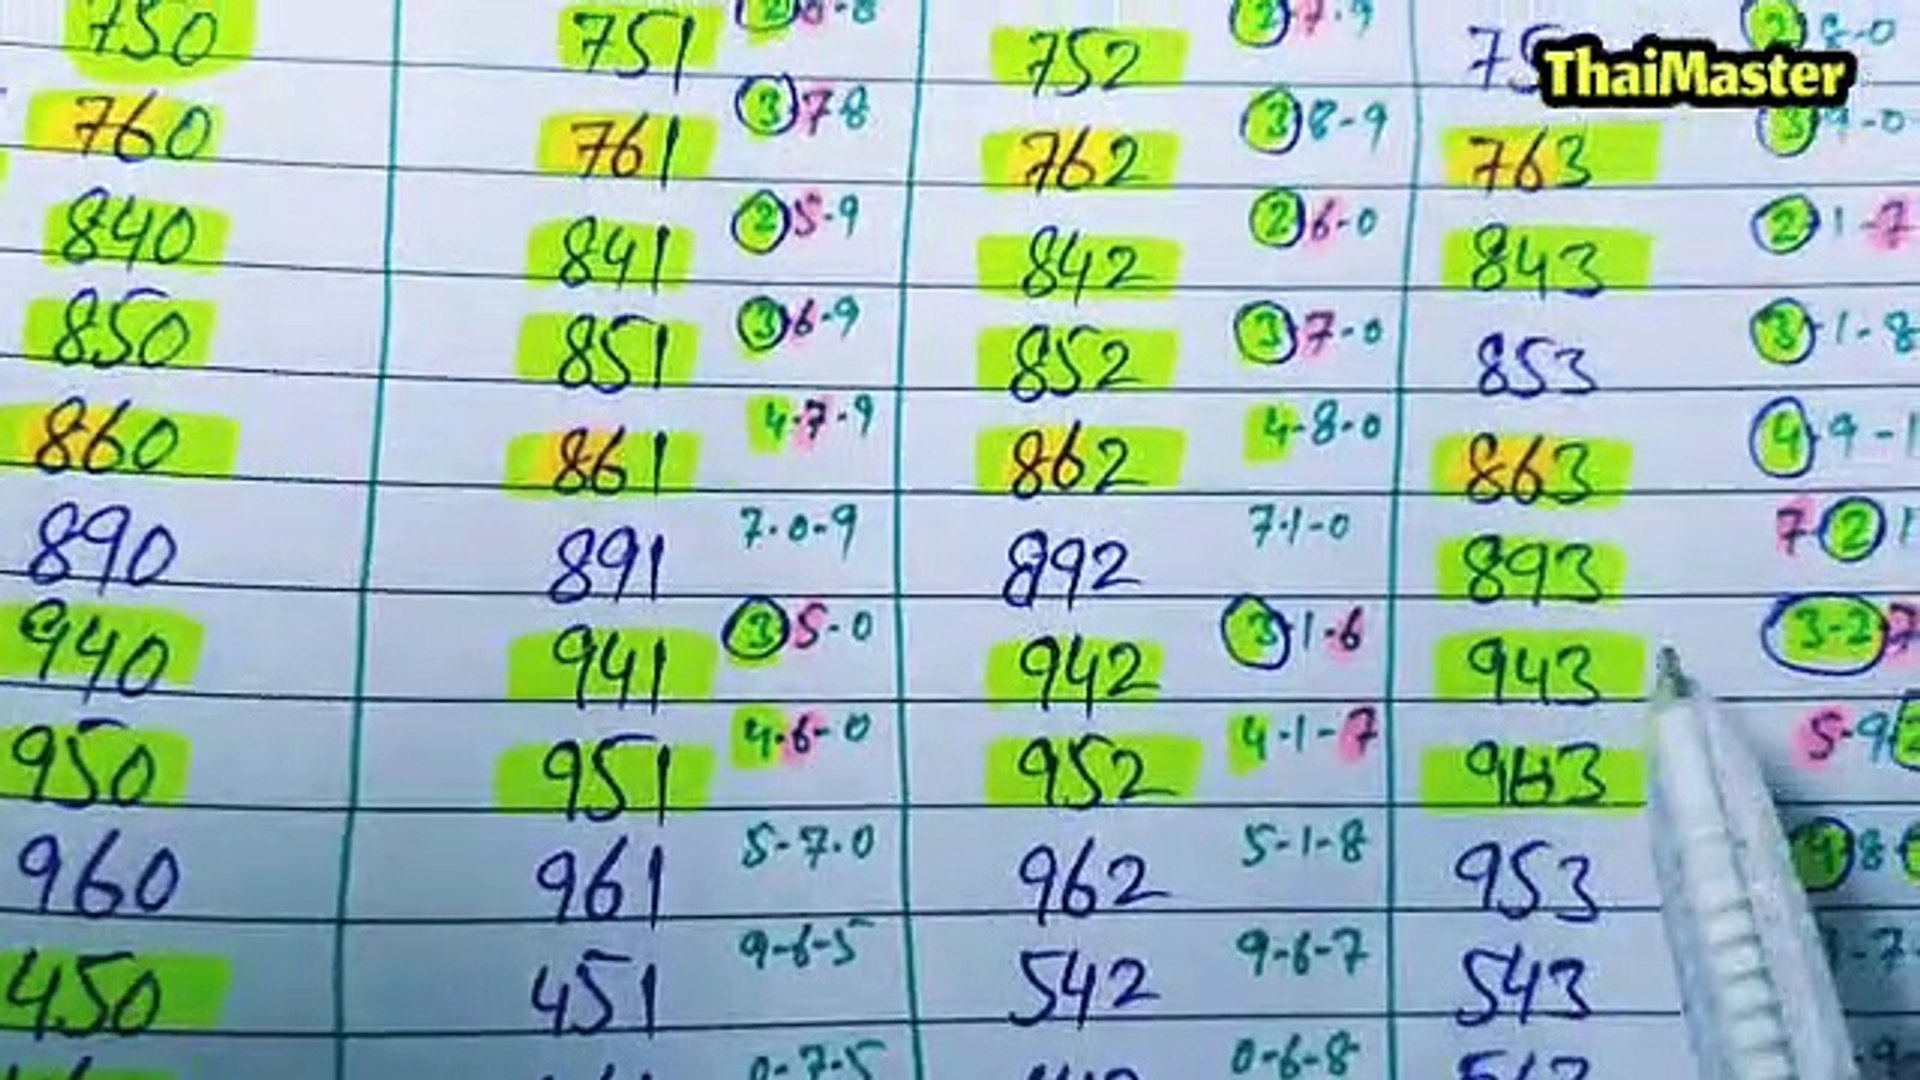 750 751 2 8-8 752 2 7-9 75 2 8-0
ThaiMaster
760 761 3 78 762 3 8-9 763 3 9-0
840 841 2 5-9 842 2 6-0 843 2 1-7
850 851 3 6-9 852 3 7-0 853 3-1-8
860 861 4-7-9 862 4-8-0 863 4 9-1
890 891 7-0-9 892 7-1-0 893 7 2 1
940 941 3 5-0 942 3 1-6 943 3-2 7
950 951 4-6-0 952 4-1-7 963 5-9
960 961 5-7-0 962 5-1-8 953 9 8
450 451 9-6-5 542 9-6-7 543 -7-
0-7-5 0-6-8